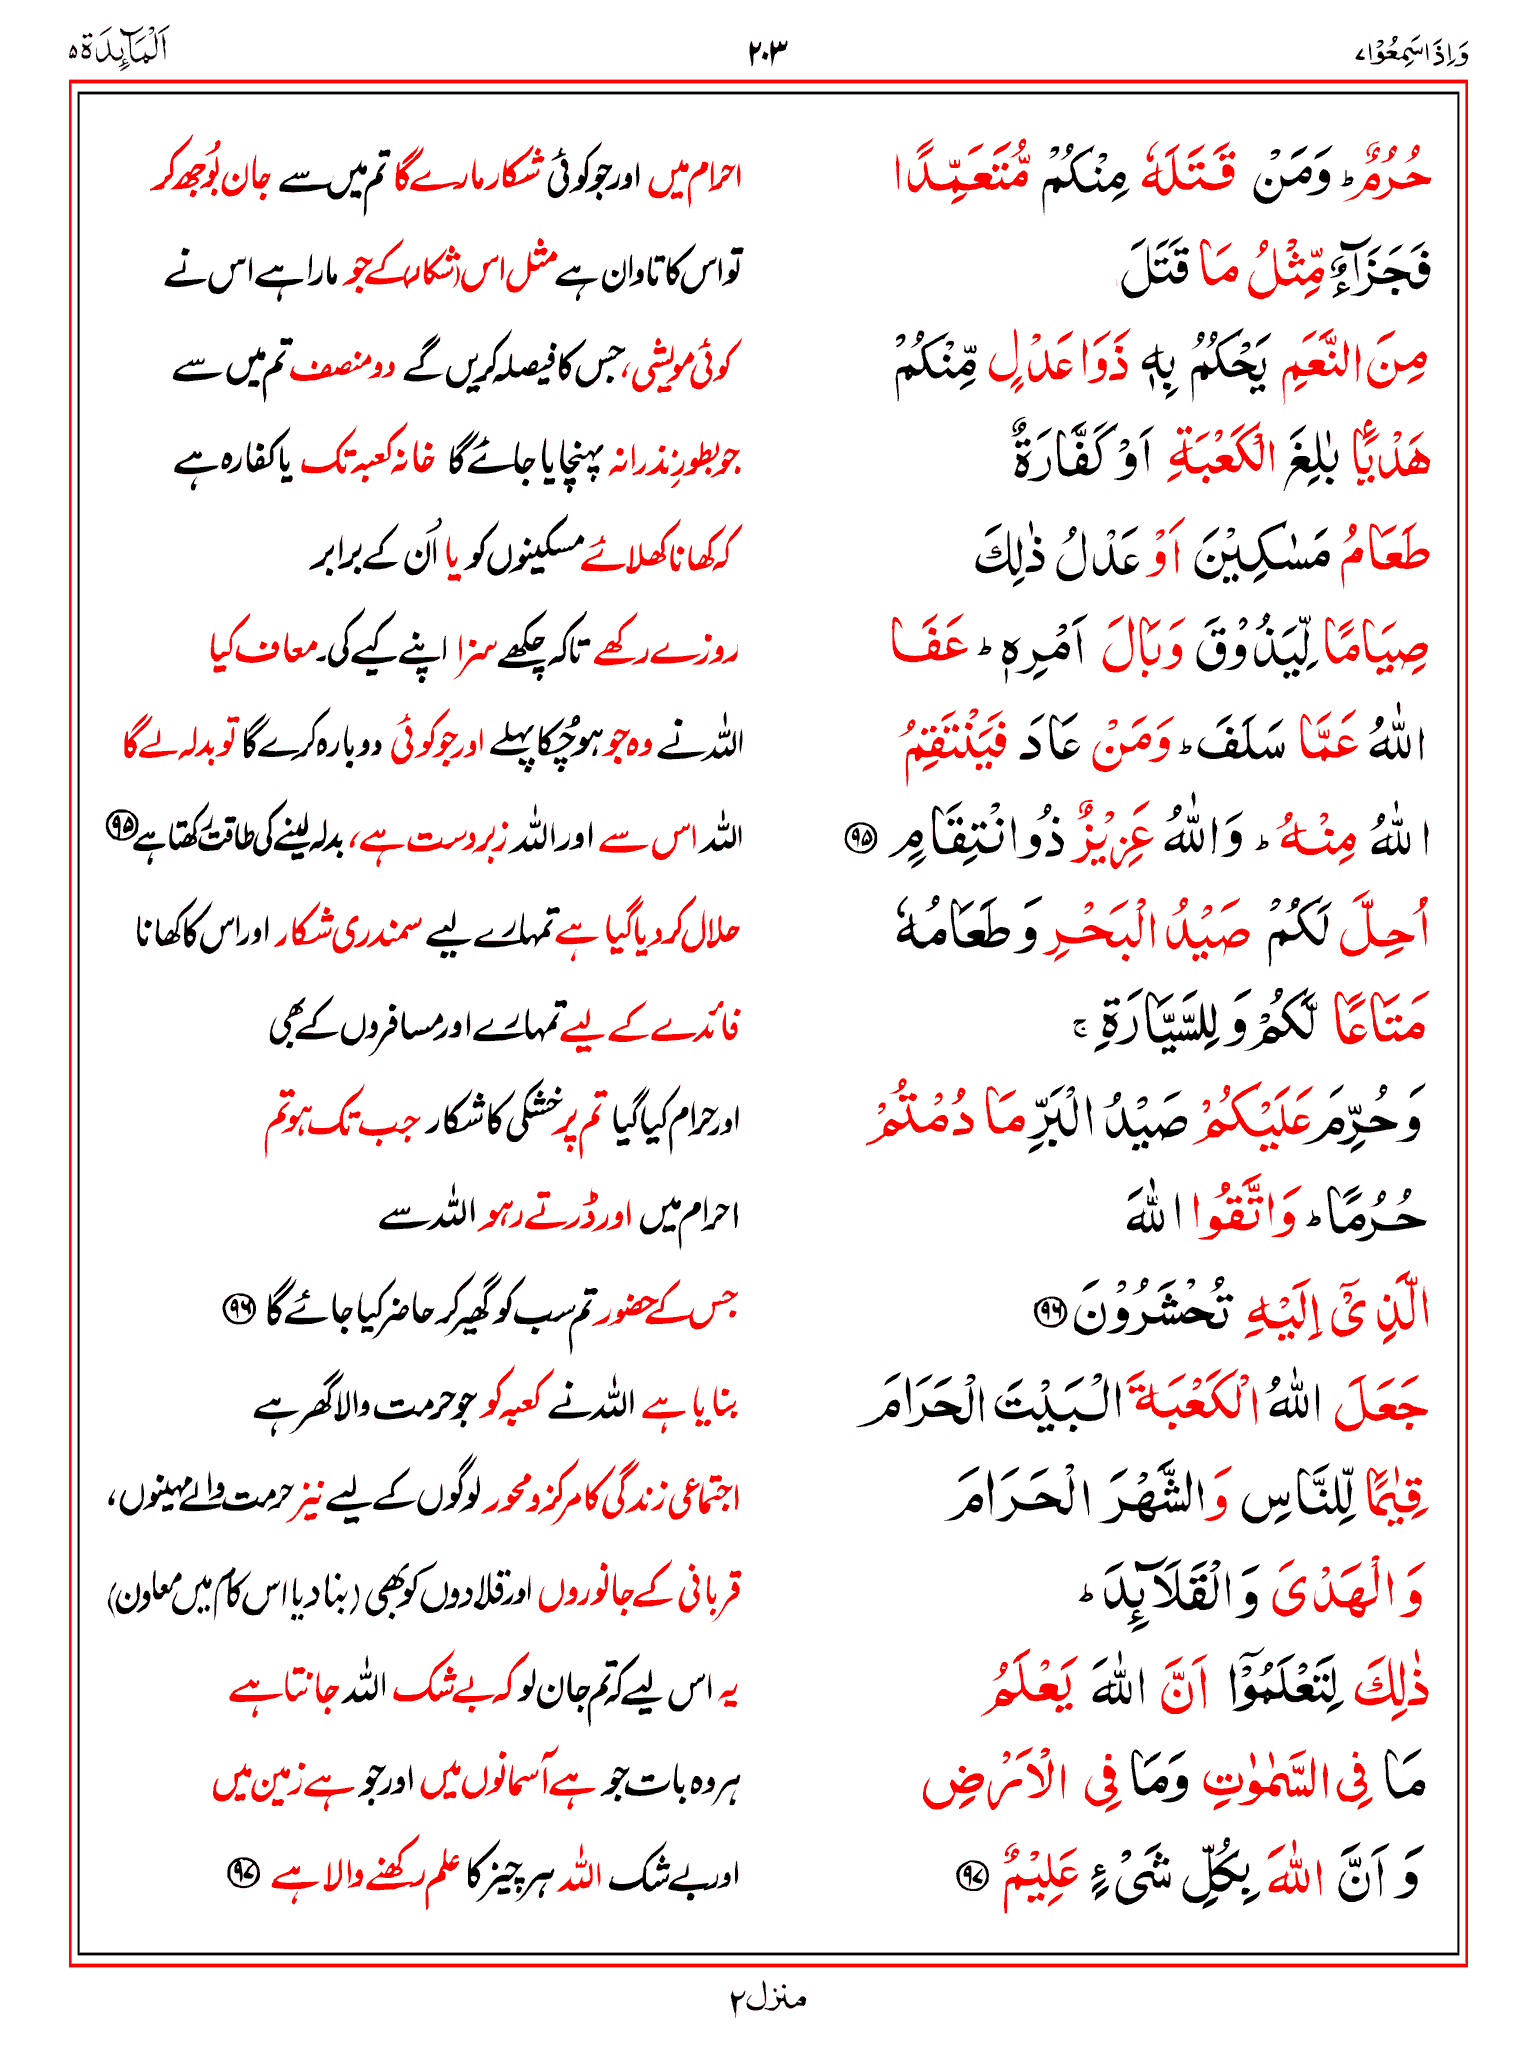 وَاِذَا سَمِعُوۡا ۷ ۲۰۳ اَلۡمَآئِدَة ۵
حُرُمٌ ؕ وَمَنۡ قَتَلَهٗ مِنۡكُمۡ مُّتَعَمِّدًا احرام میں اور جو کوئی شکار مارے گا تم میں سے جان بُوجھ کر
فَجَزَآءٌ مِّثۡلُ مَا قَتَلَ تو اس کا تاوان ہے مثل اس (شکار) کے جو مارا ہے اس نے
مِنَ النَّعَمِ يَحۡكُمُ بِهٖ ذَوَا عَدۡلٍ مِّنۡكُمۡ کوئی مویشی، جس کا فیصلہ کریں گے دو منصف تم میں سے
هَدۡيًۢا بٰلِغَ الۡكَعۡبَةِ اَوۡ كَفَّارَةٌ جو بطورِ نذرانہ پہنچایا جائے گا خانہ کعبہ تک یا کفارہ ہے
طَعَامُ مَسٰكِيۡنَ اَوۡ عَدۡلُ ذٰلِكَ کہ کھانا کھلائے مسکینوں کو یا اُن کے برابر
صِيَامًا لِّيَذُوۡقَ وَبَالَ اَمۡرِهٖ ؕ عَفَا روزے رکھے تاکہ چکھے سزا اپنے کیے کی۔ معاف کیا
اللّٰهُ عَمَّا سَلَفَ ؕ وَمَنۡ عَادَ فَيَنۡتَقِمُ اللہ نے وہ جو ہو چُکا پہلے اور جو کوئی دوبارہ کرے گا تو بدلہ لے گا
اللّٰهُ مِنۡهُ ؕ وَاللّٰهُ عَزِيۡزٌ ذُو انۡتِقَامٍ ﴿۹۵﴾ اللہ اس سے اور اللہ زبردست ہے، بدلہ لینے کی طاقت رکھتا ہے ﴿۹۵﴾
اُحِلَّ لَكُمۡ صَيۡدُ الۡبَحۡرِ وَطَعَامُهٗ حلال کر دیا گیا ہے تمہارے لیے سمندری شکار اور اس کا کھانا
مَتَاعًا لَّكُمۡ وَلِلسَّيَّارَةِ ۚ فائدے کے لیے تمہارے اور مسافروں کے بھی
وَحُرِّمَ عَلَيۡكُمۡ صَيۡدُ الۡبَرِّ مَا دُمۡتُمۡ اور حرام کیا گیا تم پر خشکی کا شکار جب تک ہو تم
حُرُمًا ؕ وَاتَّقُوا اللّٰهَ احرام میں اور ڈرتے رہو اللہ سے
الَّذِىۡۤ اِلَيۡهِ تُحۡشَرُوۡنَ ﴿۹۶﴾ جس کے حضور تم سب کو گھیر کر حاضر کیا جائے گا ﴿۹۶﴾
جَعَلَ اللّٰهُ الۡكَعۡبَةَ الۡبَيۡتَ الۡحَرَامَ بنایا ہے اللہ نے کعبہ کو جو حرمت والا گھر ہے
قِيٰمًا لِّلنَّاسِ وَالشَّهۡرَ الۡحَرَامَ اجتماعی زندگی کا مرکز و محور لوگوں کے لیے نیز حرمت والے مہینوں،
وَالۡهَدۡىَ وَالۡقَلَآئِدَ ؕ قربانی کے جانوروں اور قلادوں کو بھی (بنا دیا اس کام میں معاون)
ذٰلِكَ لِتَعۡلَمُوۡۤا اَنَّ اللّٰهَ يَعۡلَمُ یہ اس لیے کہ تم جان لو کہ بے شک اللہ جانتا ہے
مَا فِى السَّمٰوٰتِ وَمَا فِى الۡاَرۡضِ ہر وہ بات جو ہے آسمانوں میں اور جو ہے زمین میں
وَاَنَّ اللّٰهَ بِكُلِّ شَىۡءٍ عَلِيۡمٌ ﴿۹۷﴾ اور بے شک اللہ ہر چیز کا علم رکھنے والا ہے ﴿۹۷﴾
منزل ۲